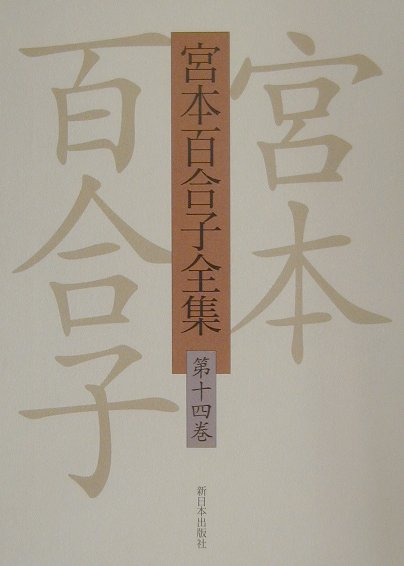 宮本
百合子
宮本百合子全集
第十四巻
新日本出版社